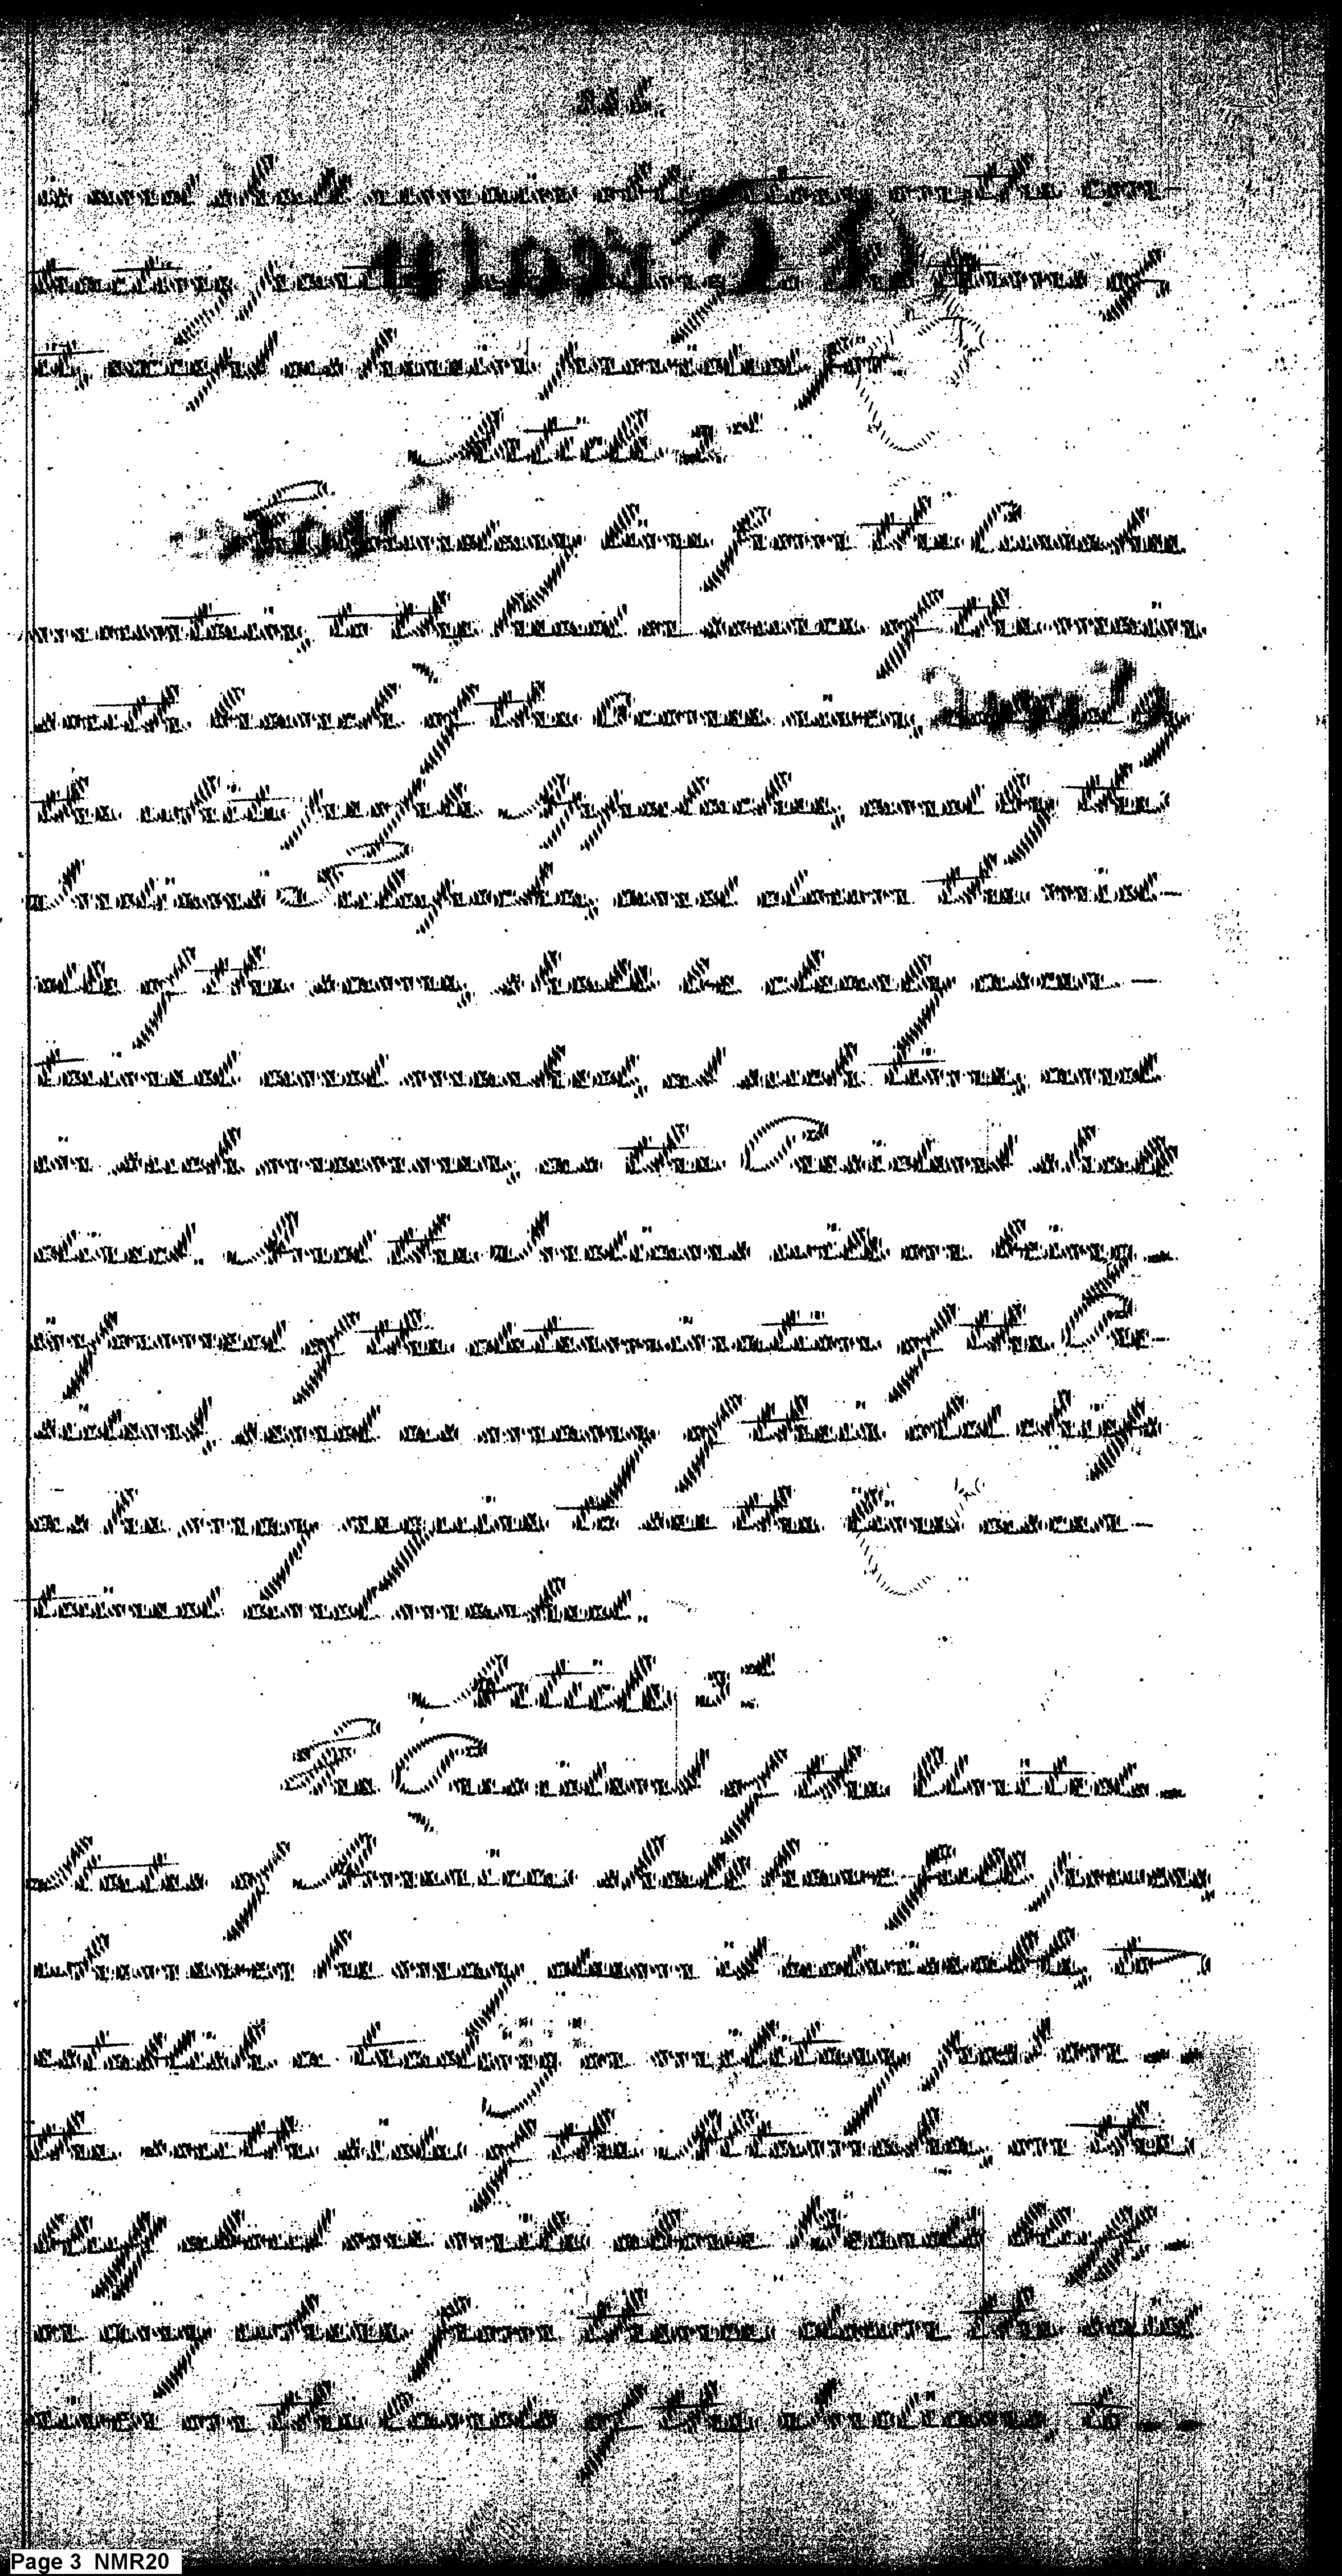 is and shall remain obligatory on the con-
tracting parties according to the terms of
it, except as herein provided for.
Article 2d
The boundary line from the Currahee
mountain, to the head or source of the main
south branch of the Oconee river, called by
the white people Appalachee, and by the
Indians Tulapocka, and down the mid-
dle of the same, shall be clearly ascer-
tained and marked, at such time, and
in such manner, as the President shall
direct. And the Indians will on being
informed of the determination of the Pre-
sident, send as many of their old chiefs
as he may require to see the line ascer-
tained and marked.
Article 3d
The President of the United
States of America shall have full powers,
whenever he may deem it adviseable, to
establish a trading or military post on
the south side of the Altamaha, on the
bluff about one mile above Beards bluff
or any where from thence down the said
river on the lands of the Indians, to
Page 3 NMR20